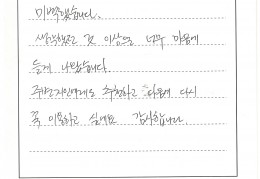 미백했습니다.
생각했던 것 이상으로 너무 마음에
들게 나왔습니다.
주변지인에게도 추천하고 다음에 다시
꼭 이용하고 싶네요 감사합니다